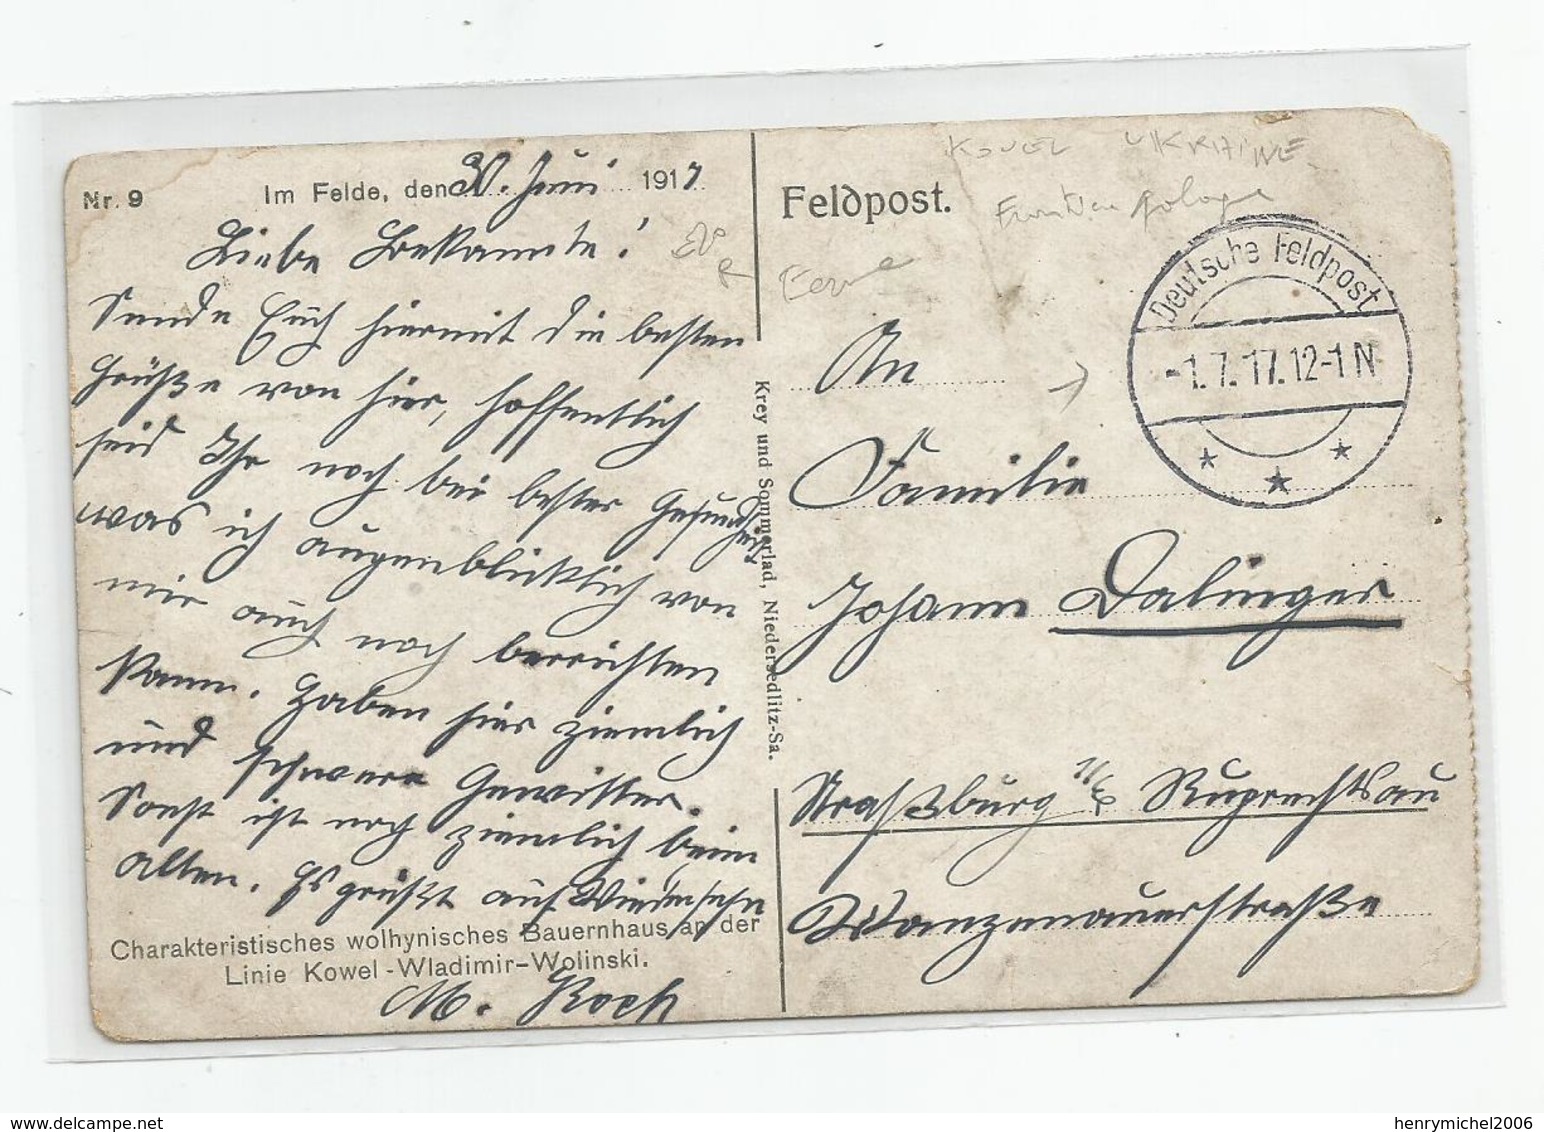 Nr. 9 Im Felde, den 30. Juni 1917
Liebe Bekannte!
Sende Euch hiermit die besten
Grüße von hier, hoffentlich
seid Ihr noch bei bester Gesundheit
was ich augenblicklich von
mir auch noch berrichten
kann. Haben hier ziemlich
und schwere Gewitter.
Sonst ist noch ziemlich beim
alten. Es grüßt auf Wiedersehn
Charakteristisches wolhynisches Bauernhaus an der
Linie Kowel-Wladimir-Wolinski.
M. Koch
Krey und Sommerlad, Niedersedlitz-Sa.
KOVEL UKRAINE
Feldpost.
Deutsche Feldpost
-1.7.17.12-1 N
An
Familie
Johann Dalinger
Straßburg i/E Ruprechtsau
Wanzenauerstraße
www.delcampe.net
henrymichel2006